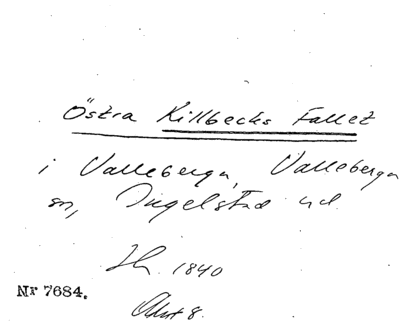 Östra Killbecks Fallet
i Valleberga, Valleberga
sn, Ingelstad hd.
Th. 1840
Nr 7684.
Akt 8.